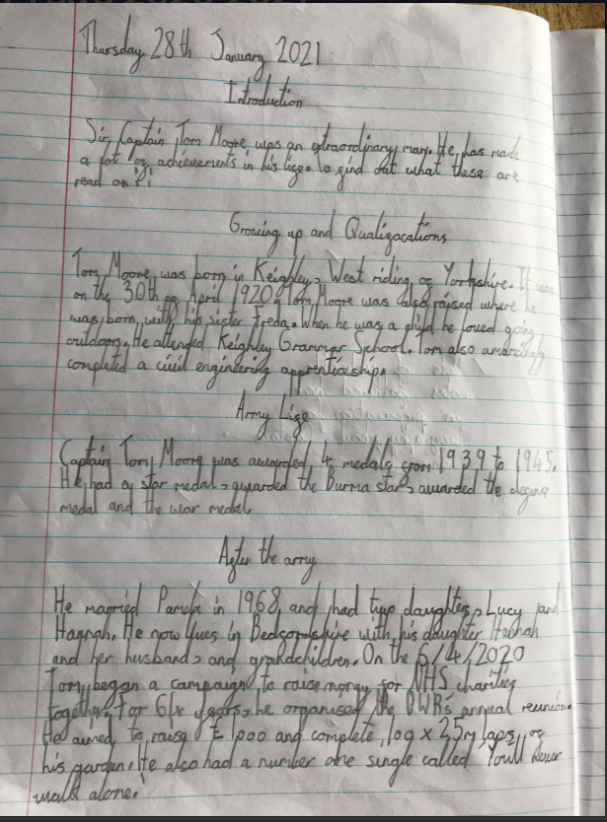 Thursday 28th January 2021
Introduction
Sir Captain Tom Moore was an extraordinary man. He has made
a lot of achievements in his life. To find out what these are
read on
Growing up and Qualifacations
Tom Moore was born in Keighley, West riding of Yorkshire. It was
on the 30th of April 1920. Tom Moore was also raised where he
was born, with his sister Freda. When he was a child he loved going
outdoors. He attended Keighley Grammar School. Tom also amazingly
completed a civil engineering apprenticeship.
Army Life
Captain Tom Moore was awarded 4 medals from 1939 to 1945.
He had a star medal, awarded the Burma star, awarded the defence
medal and the war medal.
After the army
He married Pamela in 1968 and had two daughters, Lucy and
Hannah. He now lives in Bedfordshire with his daughter Hannah
and her husband, and grandchildren. On the 6/4/2020
Tom began a campaign to raise money for NHS charities
together. For 64 years, he organised the DWR's annual reunion.
He aimed to raise £1000 and complete 100 x 25m laps of
his garden. He also had a number one single called 'You'll Never
walk alone.'